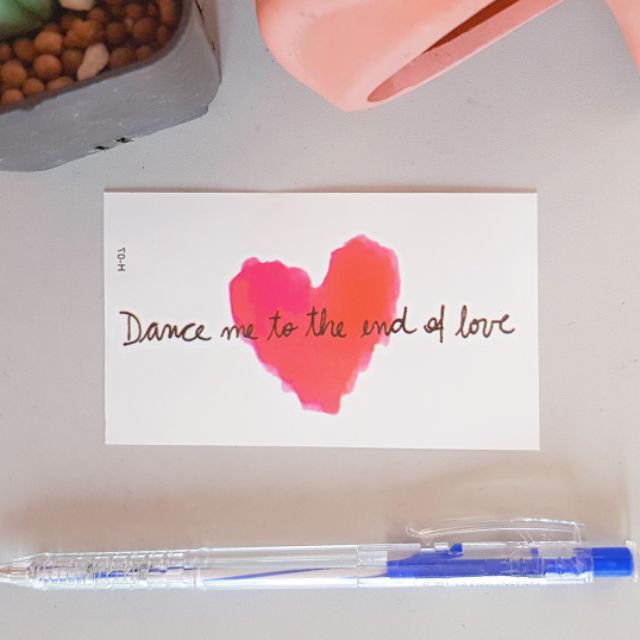 H-07
Dance me to the end of love